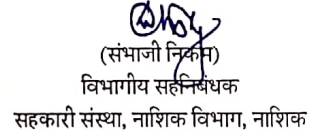 (संभाजी निकम)
विभागीय सहनिबंधक
सहकारी संस्था, नाशिक विभाग, नाशिक